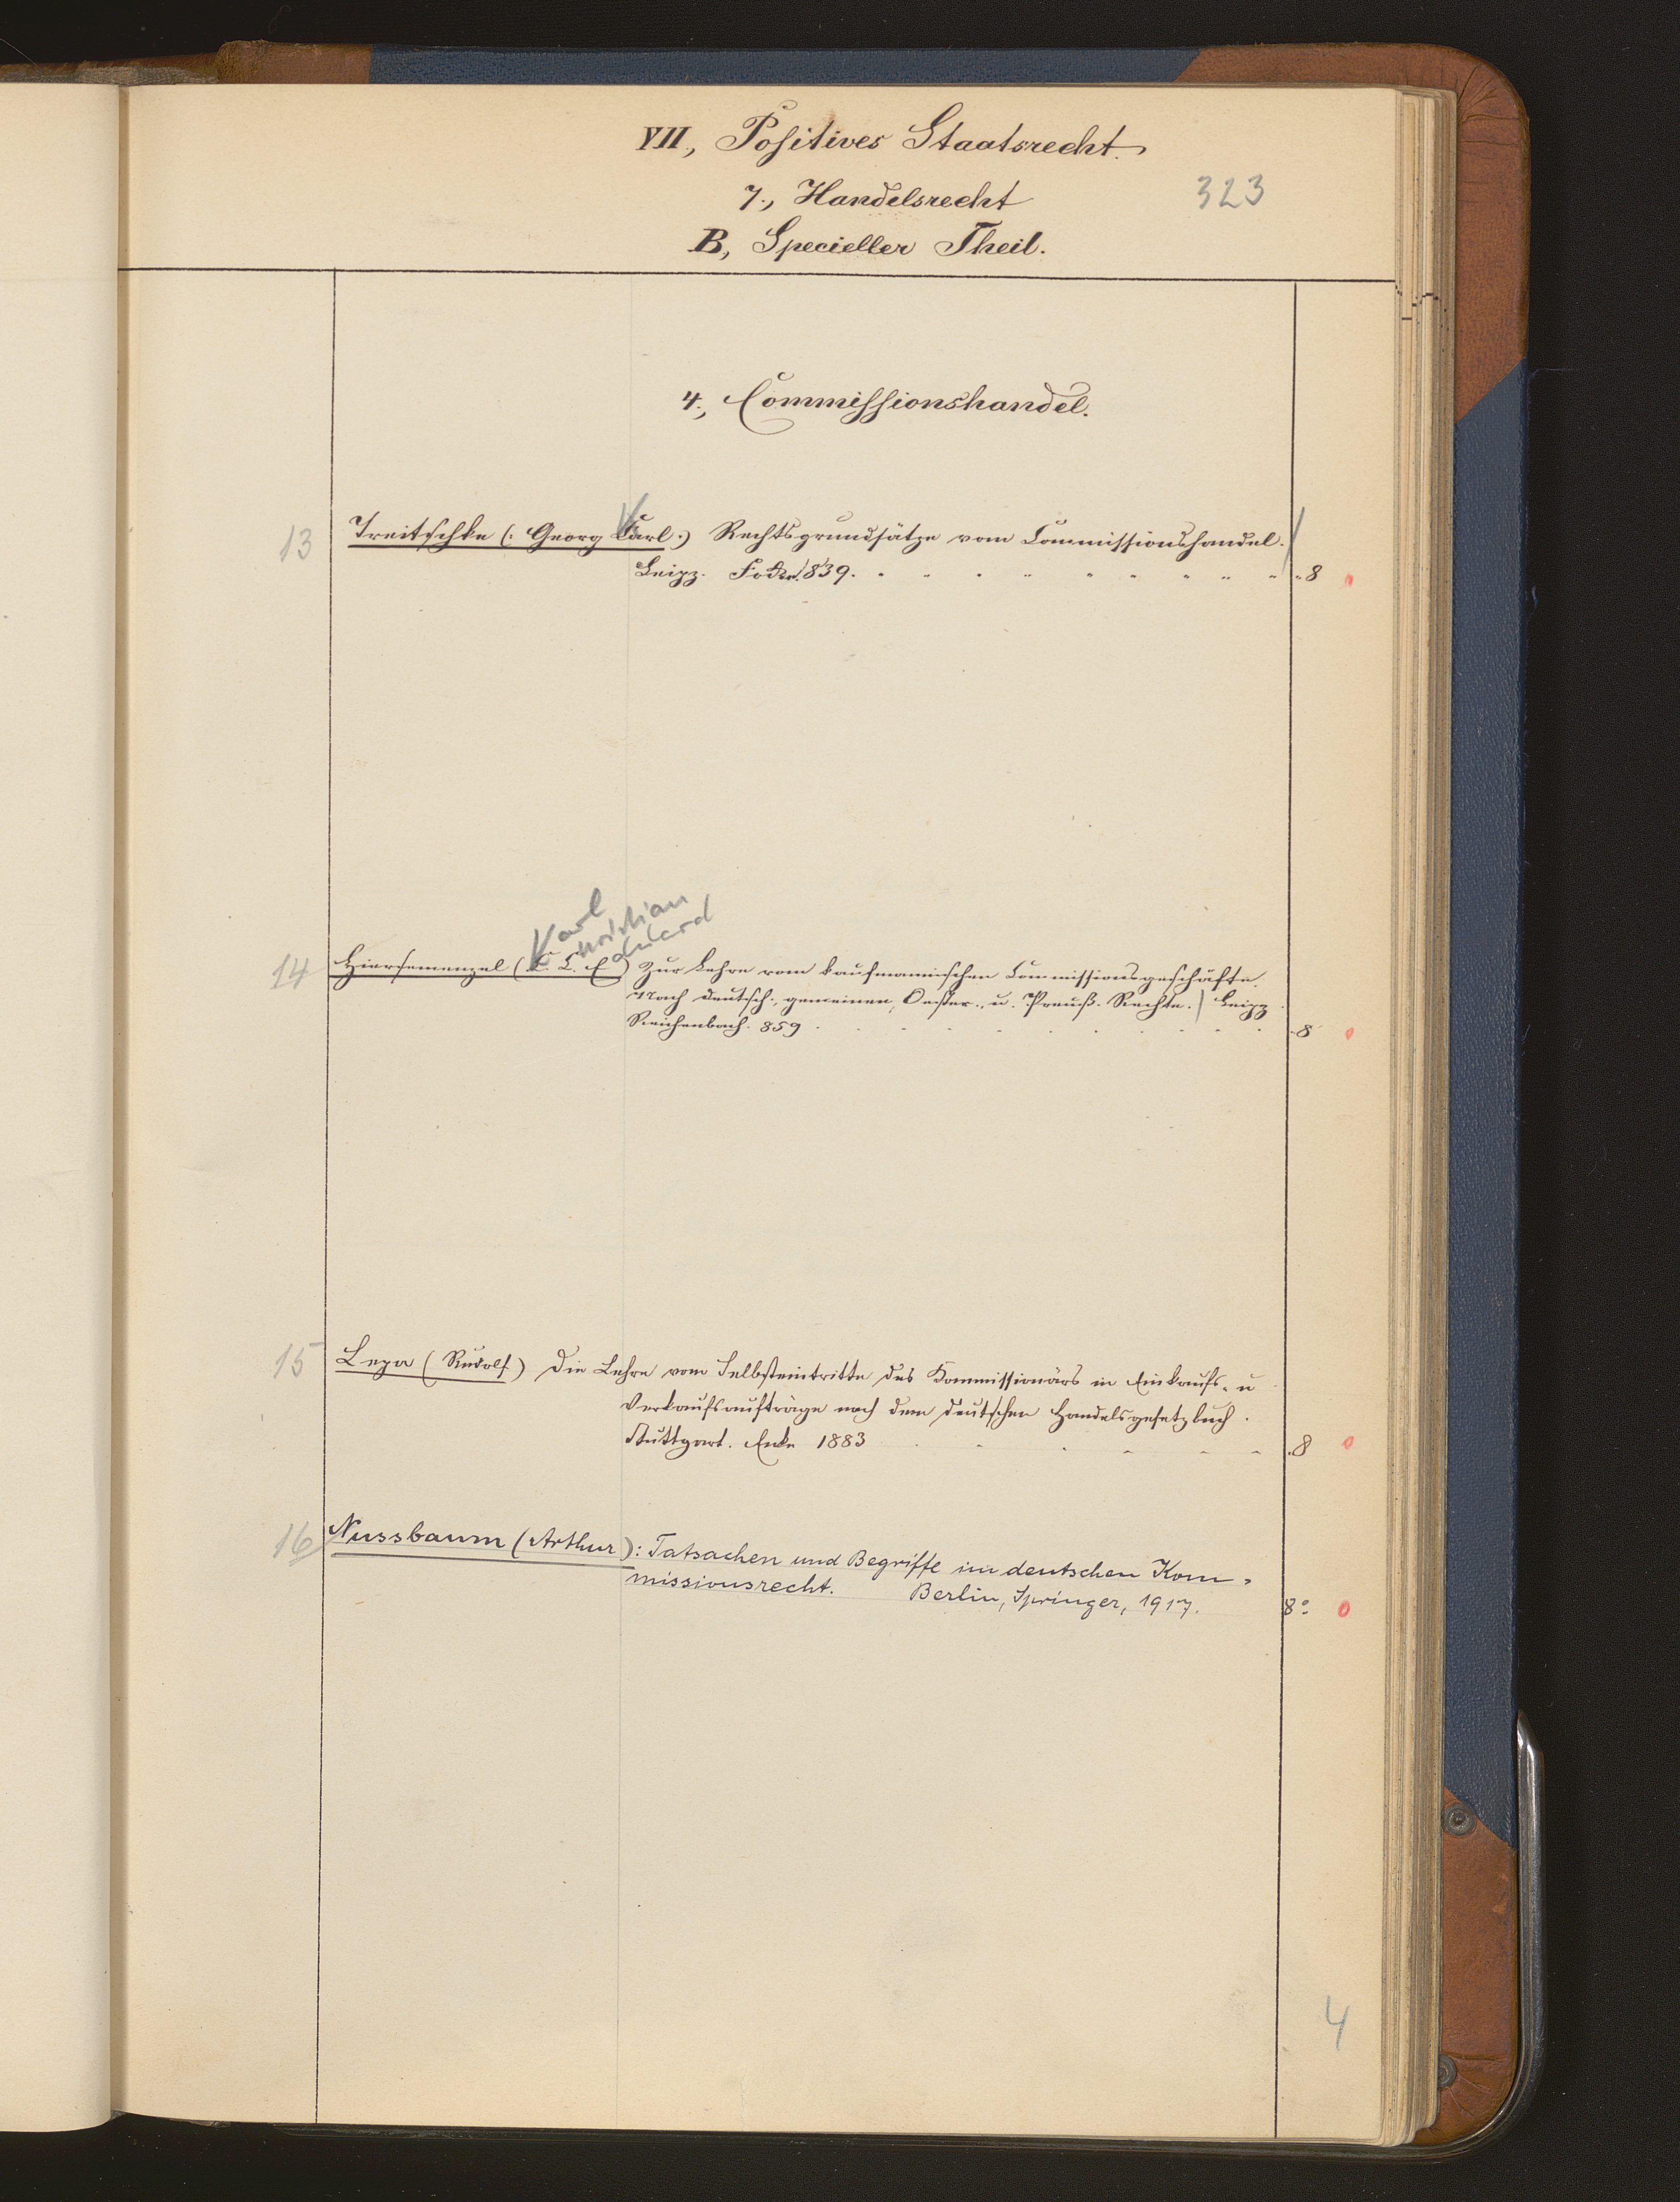 VII., Positives Staatsrecht.
7., Handelsrecht
323
B, Specieller Theil.
4., Commissionshandel.
13 Treitschke (: Georg Carl :) Rechtsgrundsätze vom Commissionshandel.
Leipz. 1839. 8 0
Karl
Christian
Eduard
14 Hiersemenzel (C. C. E) Zur Lehre vom kaufmannischen Commissionsgeschäfte.
Nach deutsch., gemeinen, Oester. u. Preuß. Rechte.) Leipz
Reichenbach. 859 8 0
15 Lepa (Rudolf) Die Lehre vom Selbsteintritte des Kommissionärs in Einkaufs- u
Verkaufsaufträge nach dem deutschen Handelsgesetzbuch.
Stuttgart. Enke 1883 8 0
16 Nussbaum (Arthur): Tatsachen und Begriffe im deutschen Kom-
missionsrecht. Berlin, Springer, 1917. 8° 0
4